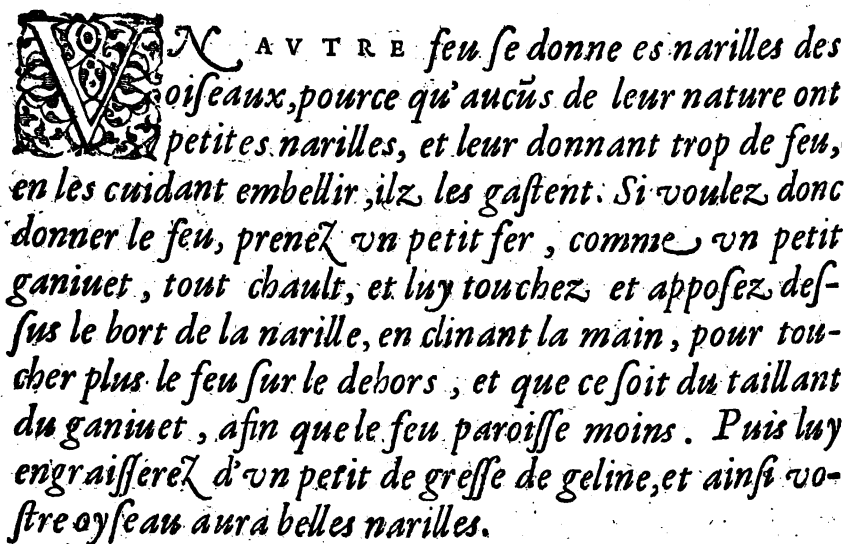 VN AVTRE feu ſe donne es narilles des
oiſeaux, pource qu'aucūs de leur nature ont
petites narilles, et leur donnant trop de feu,
en les cuidant embellir, ilz les gaſtent. Si voulez donc
donner le feu, prenez vn petit fer, comme vn petit
ganiuet, tout chault, et luy touchez et appoſez deſ-
ſus le bort de la narille, en clinant la main, pour tou-
cher plus le feu ſur le dehors, et que ce ſoit du taillant
du ganiuet, afin que le feu paroiſſe moins. Puis luy
engraiſſerez d'vn petit de greſſe de geline, et ainſi vo-
ſtre oyſeau aura belles narilles.